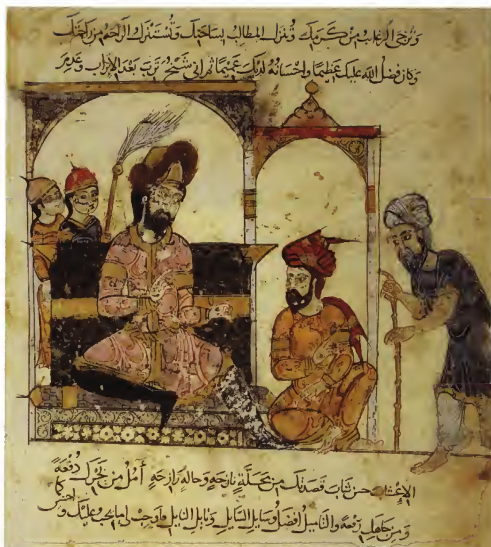 وترجى الرغائب من كرمك وتنزل المطالب بساحتك وتستنزل الراحه من راحتك
وكان فضل الله عليك عظيما واحسانه لديك عميما ثم اني شيخ ترب بعد الاتراب وعدم
الاعشاب حين شاب قصدتك من محلة نازحه وحاله رازحه آمل من بحرك دفعه
ومن جاهك رفعه والتاميل افضل وسايل السايل ونايل النايل فاوجب لي ما يجب عليك واحسن كما